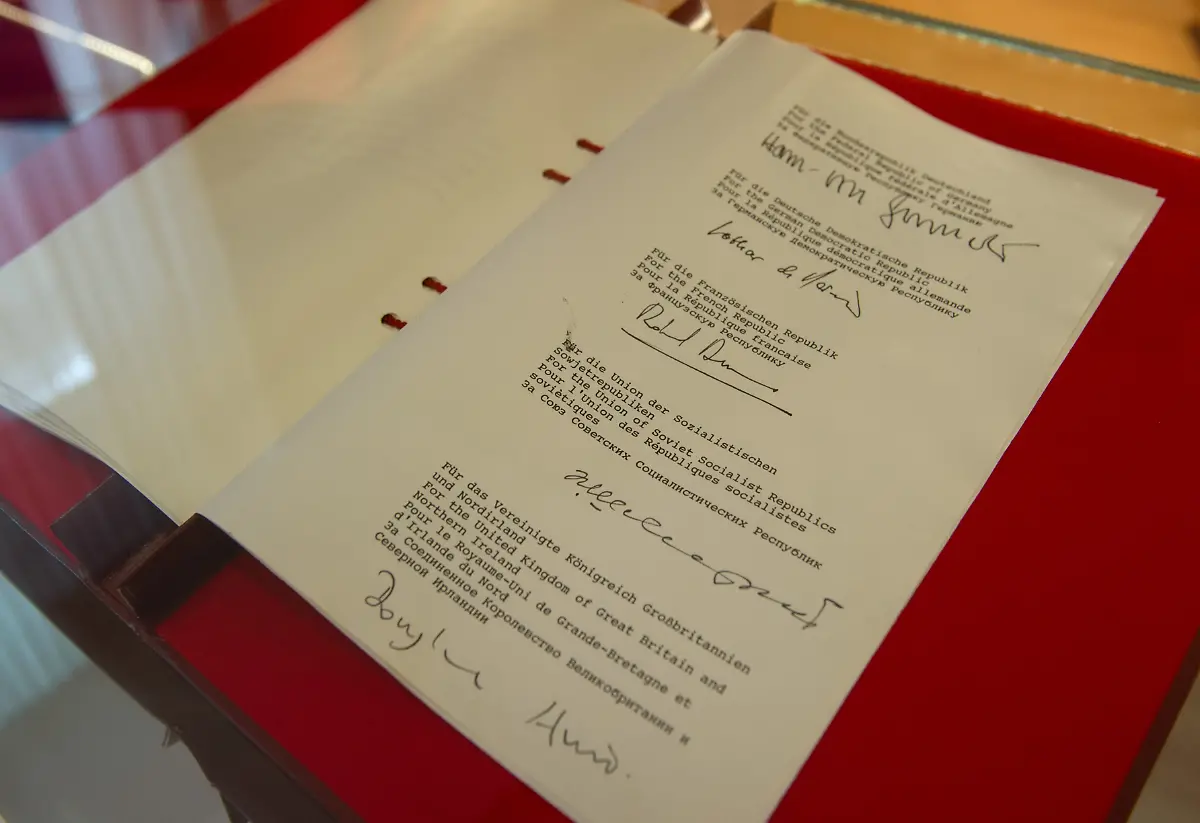 Für die Bundesrepublik Deutschland
For the Federal Republic of Germany
Pour la République fédérale d'Allemagne
За Федеративную Республику Германия
Für die Deutsche Demokratische Republik
For the German Democratic Republic
Pour la République démocratique allemande
За Германскую Демократическую Республику
Lothar de
Für die Französischen Republik
For the French Republic
Pour la République francaise
За Французскую Республику
Für die Union der Sozialistischen
Sowjetrepubliken
For the Union of Soviet Socialist Republics
Pour l'Union des Républiques socialistes
soviètiques
За Союз Советских Социалистических Республик
Für das Vereinigte Königreich Großbritannien
und Nordirland
For the United Kingdom of Great Britain and
Northern Ireland
Pour le Royaume-Uni de Grande-Bretagne et
d'Irlande du Nord
За Соединенное Королевство Великобритании и
Северной Ирландии
Douglas Hurd.